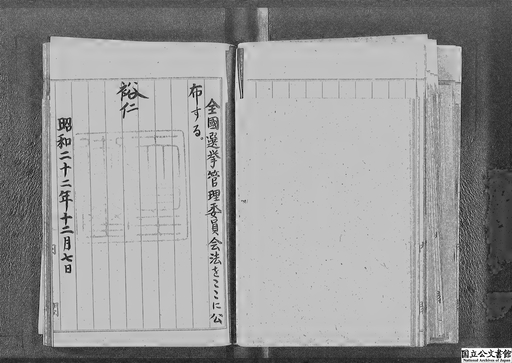 全國選挙管理委員会法をここに公
布する。
裕仁
昭和二十二年十二月七日
国立公文書館
National Archives of Japan